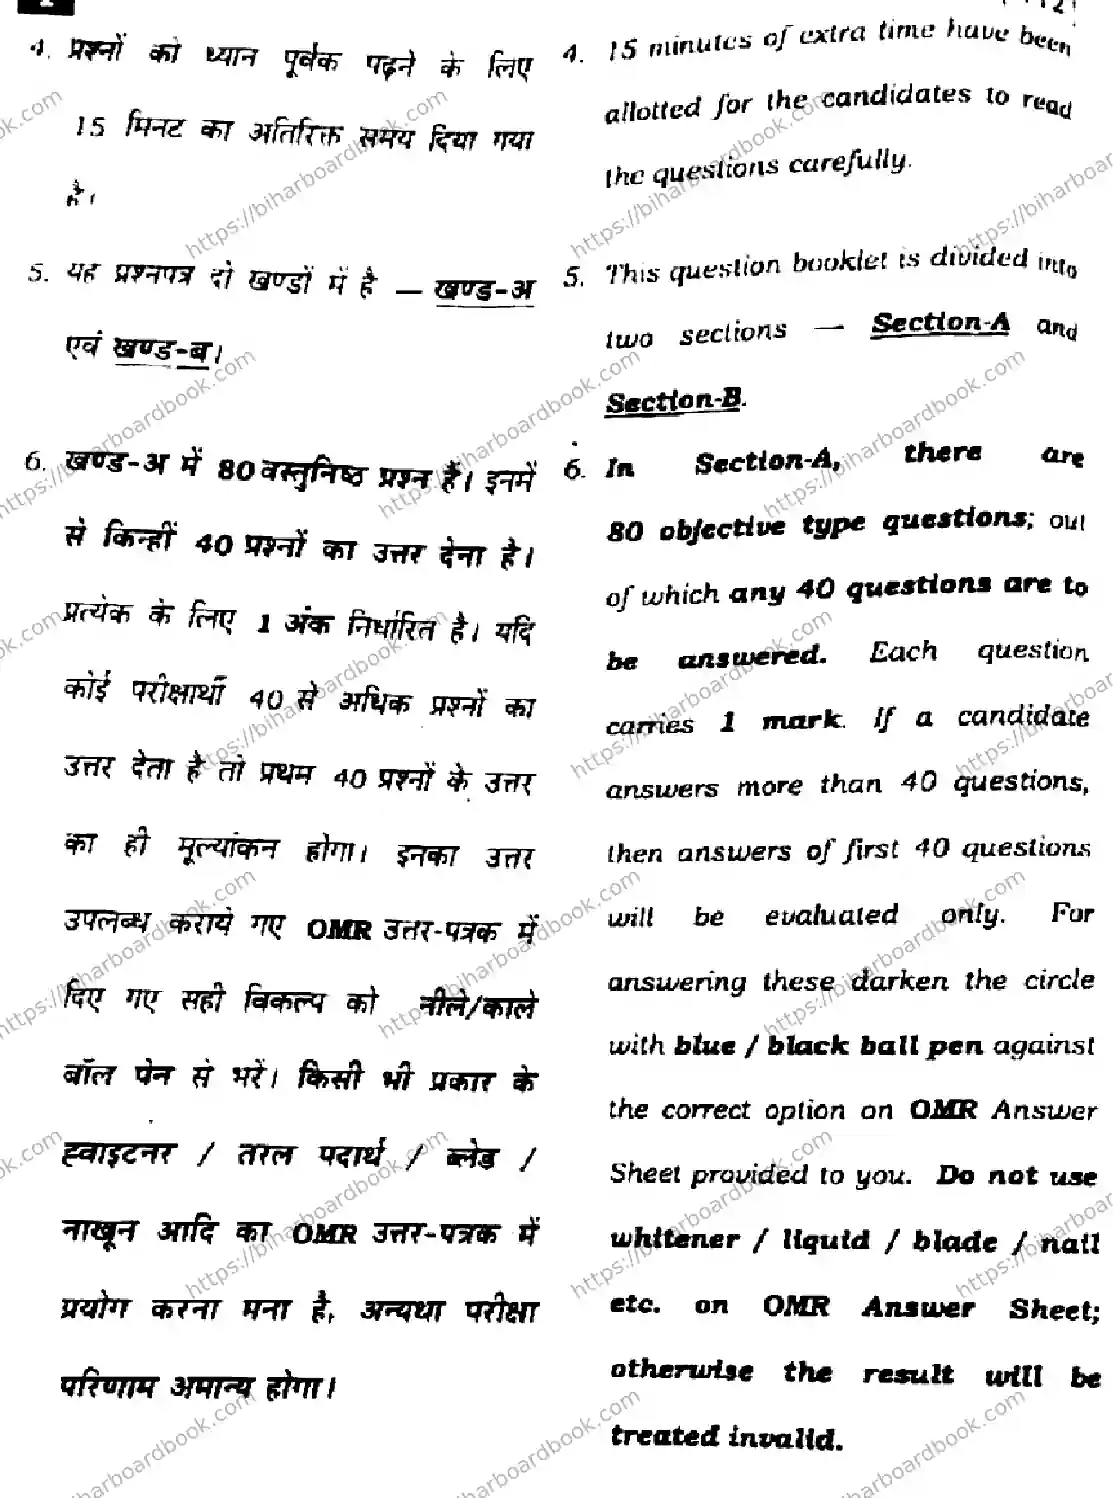 4. प्रश्नों को ध्यान पूर्वक पढ़ने के लिए
15 मिनट का अतिरिक्त समय दिया गया
है।
5. यह प्रश्नपत्र दो खण्डों में है — खण्ड-अ
एवं खण्ड-ब।
6. खण्ड-अ में 80 वस्तुनिष्ठ प्रश्न हैं। इनमें
से किन्हीं 40 प्रश्नों का उत्तर देना है।
प्रत्येक के लिए 1 अंक निर्धारित है। यदि
कोई परीक्षार्थी 40 से अधिक प्रश्नों का
उत्तर देता है तो प्रथम 40 प्रश्नों के उत्तर
का ही मूल्यांकन होगा। इनका उत्तर
उपलब्ध कराये गए OMR उत्तर-पत्रक में
दिए गए सही विकल्प को नीले/काले
बॉल पेन से भरें। किसी भी प्रकार के
ह्वाइटनर / तरल पदार्थ / ब्लेड /
नाखून आदि का OMR उत्तर-पत्रक में
प्रयोग करना मना है, अन्यथा परीक्षा
परिणाम अमान्य होगा।
4. 15 minutes of extra time have been
allotted for the candidates to read
the questions carefully.
5. This question booklet is divided into
two sections — Section-A and
Section-B.
6. In Section-A, there are
80 objective type questions; out
of which any 40 questions are to
be answered. Each question
carries 1 mark. If a candidate
answers more than 40 questions,
then answers of first 40 questions
will be evaluated only. For
answering these darken the circle
with blue / black ball pen against
the correct option on OMR Answer
Sheet provided to you. Do not use
whitener / liquid / blade / nail
etc. on OMR Answer Sheet;
otherwise the result will be
treated invalid.
https://biharboardbook.com